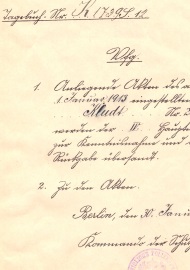 Tagebuch. Nr. K 1739I. 12
Vfg.
1. Anliegende Akten des a
1 Januar 1913 eingestellten
Kludt Nr. 2
werden der IV. Haupt
zur Kenntnisnahme und
Rückgabe übersandt.
2. Zu den Akten.
Berlin, den 30. Janu
Kommando der Schutz